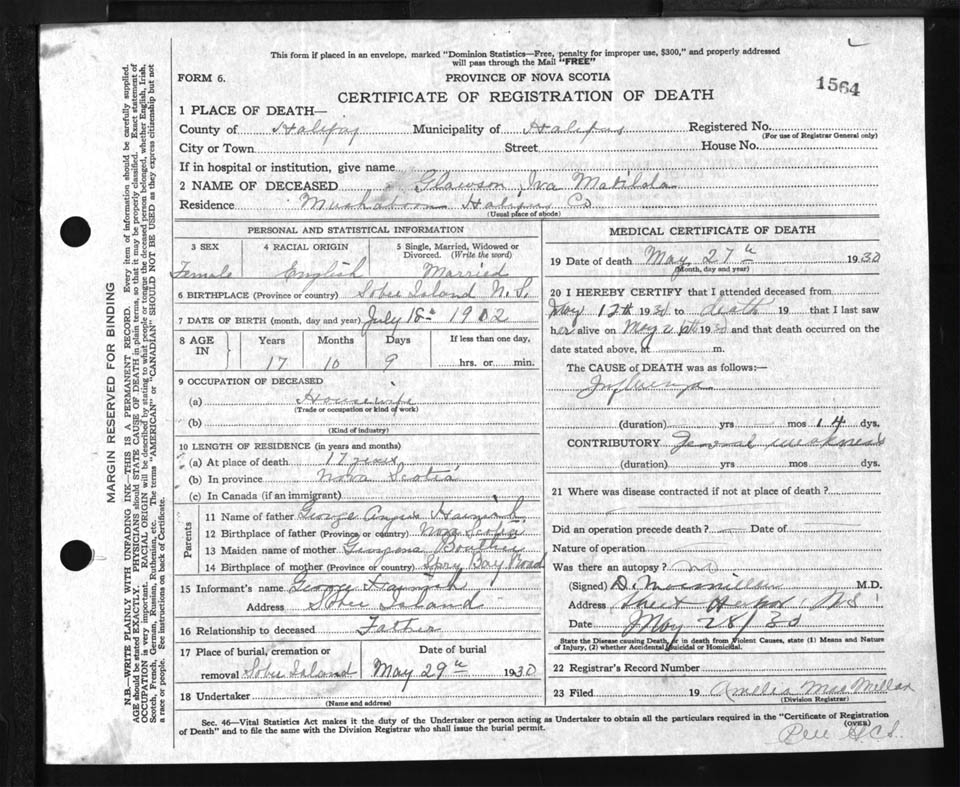 This form if placed in an envelope, marked "Dominion Statistics—Free, penalty for improper use, $300," and properly addressed
will pass through the Mail "FREE"
FORM 6.
PROVINCE OF NOVA SCOTIA
1564
CERTIFICATE OF REGISTRATION OF DEATH
1 PLACE OF DEATH—
County of Halifax Municipality of Halifax Registered No.
(For use of Registrar General only)
City or Town Street House No.
If in hospital or institution, give name
2 NAME OF DECEASED Glawson, Iva Matilda
Residence Halifax Co
(Usual place of abode)
PERSONAL AND STATISTICAL INFORMATION
3 SEX 4 RACIAL ORIGIN 5 Single, Married, Widowed or Divorced. (Write the word)
Female English Married
6 BIRTHPLACE (Province or country) Sober Island N.S.
7 DATE OF BIRTH (month, day and year) July 18th 1912
8 AGE IN Years Months Days If less than one day,
17 10 9 hrs. or min.
9 OCCUPATION OF DECEASED
(a) Housewife
(Trade or occupation or kind of work)
(b)
(Kind of industry)
10 LENGTH OF RESIDENCE (in years and months)
(a) At place of death 17 years
(b) In province Nova Scotia
(c) In Canada (if an immigrant)
Parents
11 Name of father George Angus
12 Birthplace of father (Province or country) Nova Scotia
13 Maiden name of mother
14 Birthplace of mother (Province or country) Spry Bay Road
15 Informant's name George
Address Sober Island
16 Relationship to deceased Father
17 Place of burial, cremation or removal Sober Island Date of burial May 29th 1930
18 Undertaker
(Name and address)
MEDICAL CERTIFICATE OF DEATH
19 Date of death May 27th 1930
(Month, day and year)
20 I HEREBY CERTIFY that I attended deceased from
May 12th 1930 to death 19 that I last saw
her alive on May 26th 1930 and that death occurred on the
date stated above, at m.
The CAUSE OF DEATH was as follows:—
Influenza
(duration) yrs mos 14 dys.
CONTRIBUTORY General weakness
(duration) yrs mos dys.
21 Where was disease contracted if not at place of death?
Did an operation precede death? — Date of —
Nature of operation
Was there an autopsy? no
(Signed) D. Macmillan M.D.
Address Sheet Harbor NS
Date May 28/30
State the Disease causing Death, or in death from Violent Causes, state (1) Means and Nature
of Injury, (2) whether Accidental, Suicidal or Homicidal.
22 Registrar's Record Number
23 Filed 19 Amelia MacMillan
(Division Registrar)
Sec. 46—Vital Statistics Act makes it the duty of the Undertaker or person acting as Undertaker to obtain all the particulars required in the "Certificate of Registration
of Death" and to file the same with the Division Registrar who shall issue the burial permit.
(OVER)
MARGIN RESERVED FOR BINDING
N.B.—WRITE PLAINLY WITH UNFADING INK—THIS IS A PERMANENT RECORD. Every item of information should be carefully supplied.
AGE should be stated EXACTLY. PHYSICIANS should STATE CAUSE OF DEATH in plain terms, so that it may be properly classified. Exact statement of
OCCUPATION is very important. RACIAL ORIGIN will be described by stating to what people or tongue the deceased person belonged, whether English, Irish,
Scotch, French, German, Russian, Ruthenian, etc. The terms "AMERICAN" or "CANADIAN" SHOULD NOT BE USED as they express citizenship but not
a race or people. See instructions on back of Certificate.